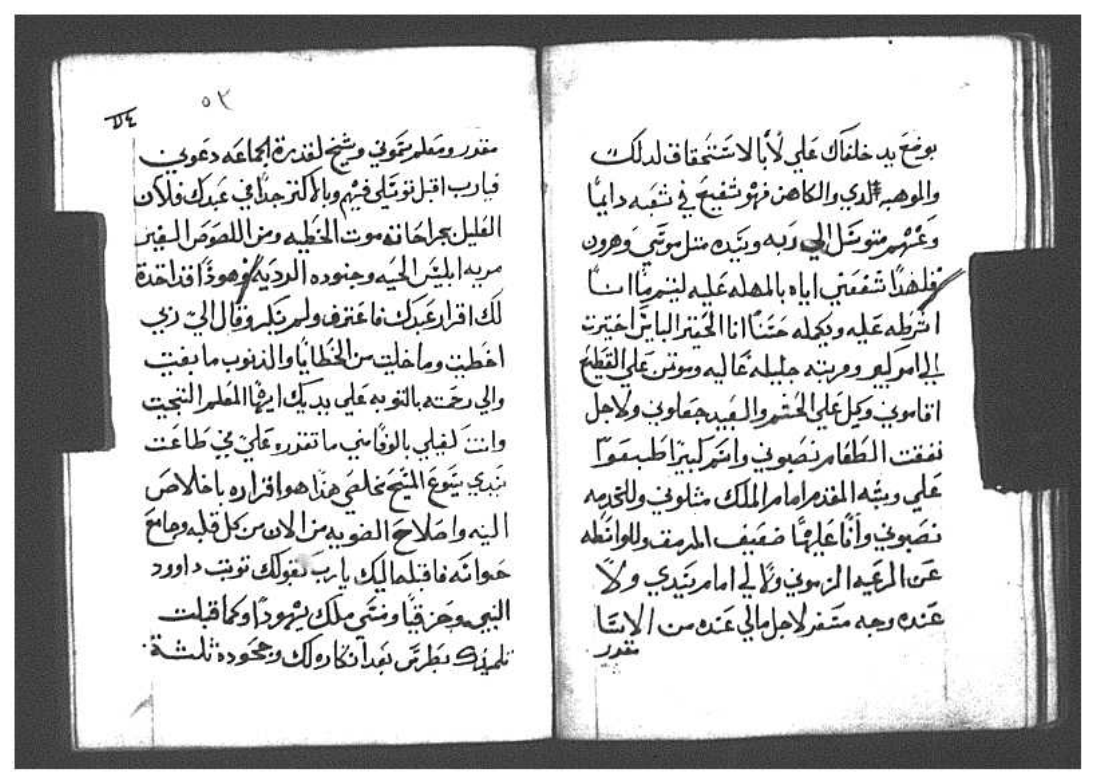 بوضع يد خلفاك علي لا بالاستحقاق لدلك
والموهبه الدي والكاهن فهو شفيع في شعبه دايما
وعنهم متوسل الي ربه وسيده متل موسي وهرون
فلهدا شفعتي اياه بالمهله عليه ليتم ما انا
اشرطه عليه ويكمله حسنا انا الحقير البايس اخترت
الي امر كبير ومرتبه جليله عاليه وموتمن علي القطيع
اقاموني وكيل علي الحشم والعبيد جعلوني ولاجل
نفقت الطعام نصبوني واسم كبيرا طبعوا
علي وبشبه المقدم امام الملك مثلوني وللخدمه
نصبوني وانا عليها ضعيف المرمق وللواسطه
عن الرعيه الزموني ولا لي امام سيدي ولا
عنده وجه مسفر لاجل مالي عنده من الاسا
مقدر
٥٣
مقدر ومعلم سموني وشيخ لقدرة الجماعه دعوني
فيارب اقبل توسلي فيهم وبالاكتر جدا في عبدك فلان
القليل بجراحاته موت الخطيه ومن اللصوص
مريه ابليس الحيه وجنوده الرديه وهودا قد اخدة
لك اقرار عبدك فاعترف ولم تكبر وقال الي ربي
اخطيت وما خليت من الخطايا والدنوب ما بقيت
والي رحمته بالتوبه علي يديك ايها المعلم التجيت
وانت كفيلي بالوفا مني ما تقدره علي في طاعت
سيدي يسوع المسيح مخلصي هدا هو اقراره باخلاص
النيه واصلاح الضويه من الان من كل قلبه وجامع
حواسه فاقبلها اليك يارب بقولك توبت داوود
النبي وحزقيا ومنسي ملك يهودا وكما قبلت
تلميدك بطرس بعد انكاره لك وجحوده تلتة